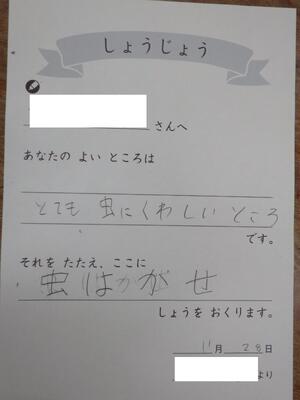 しょうじょう
さんへ
あなたの よい ところは
とても 虫にくわしい ところ
です。
それを たたえ、ここに
虫はかがせ
しょうを おくります。
11月 28日
より